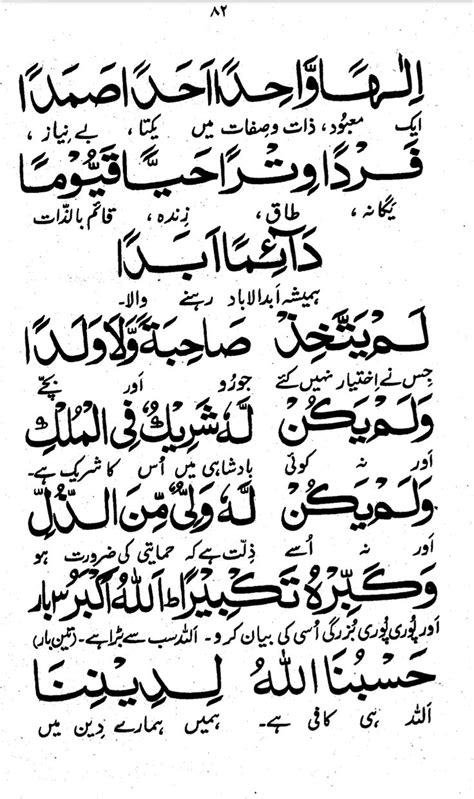 ۸۲
اِلٰهًا وَّاحِدًا اَحَدًا صَمَدًا
ایک معبُود، ذات و صِفات میں یکتا، بے نِیاز،
فَرْدًا وِتْرًا حَیًّا قَیُّوْمًا
یگانہ، طاق، زِندہ، قائم بالذّات
دَآئِمًا اَبَدًا
ہمیشہ اَبدالاباد رہنے والا۔
لَمْ یَتَّخِذْ صَاحِبَةً وَّلَا وَلَدًا
جِس نے اِختیار نہیں کئے جورُو اور بچّے
وَلَمْ یَكُنْ لَّهٗ شَرِیْكٌ فِی الْمُلْكِ
اور نہ کوئی بادشاہی میں اُس کا شریک ہے۔
وَلَمْ یَكُنْ لَّهٗ وَلِیٌّ مِّنَ الذُّلِّ
اور نہ اُسے ذِلّت ہے کہ حمایتی کی ضرورت ہو
وَكَبِّرْهُ تَكْبِیْرًا ط اَللّٰهُ اَكْبَرُ ۳ بار
اور پُوری پُوری بُزرگی اُسی کی بیان کرو۔ اَللہ سب سے بڑا ہے۔ (تین بار)
حَسْبُنَا اللّٰهُ لِدِیْنِنَا
اَللہ ہی کافی ہے۔ ہمیں ہمارے دِین میں